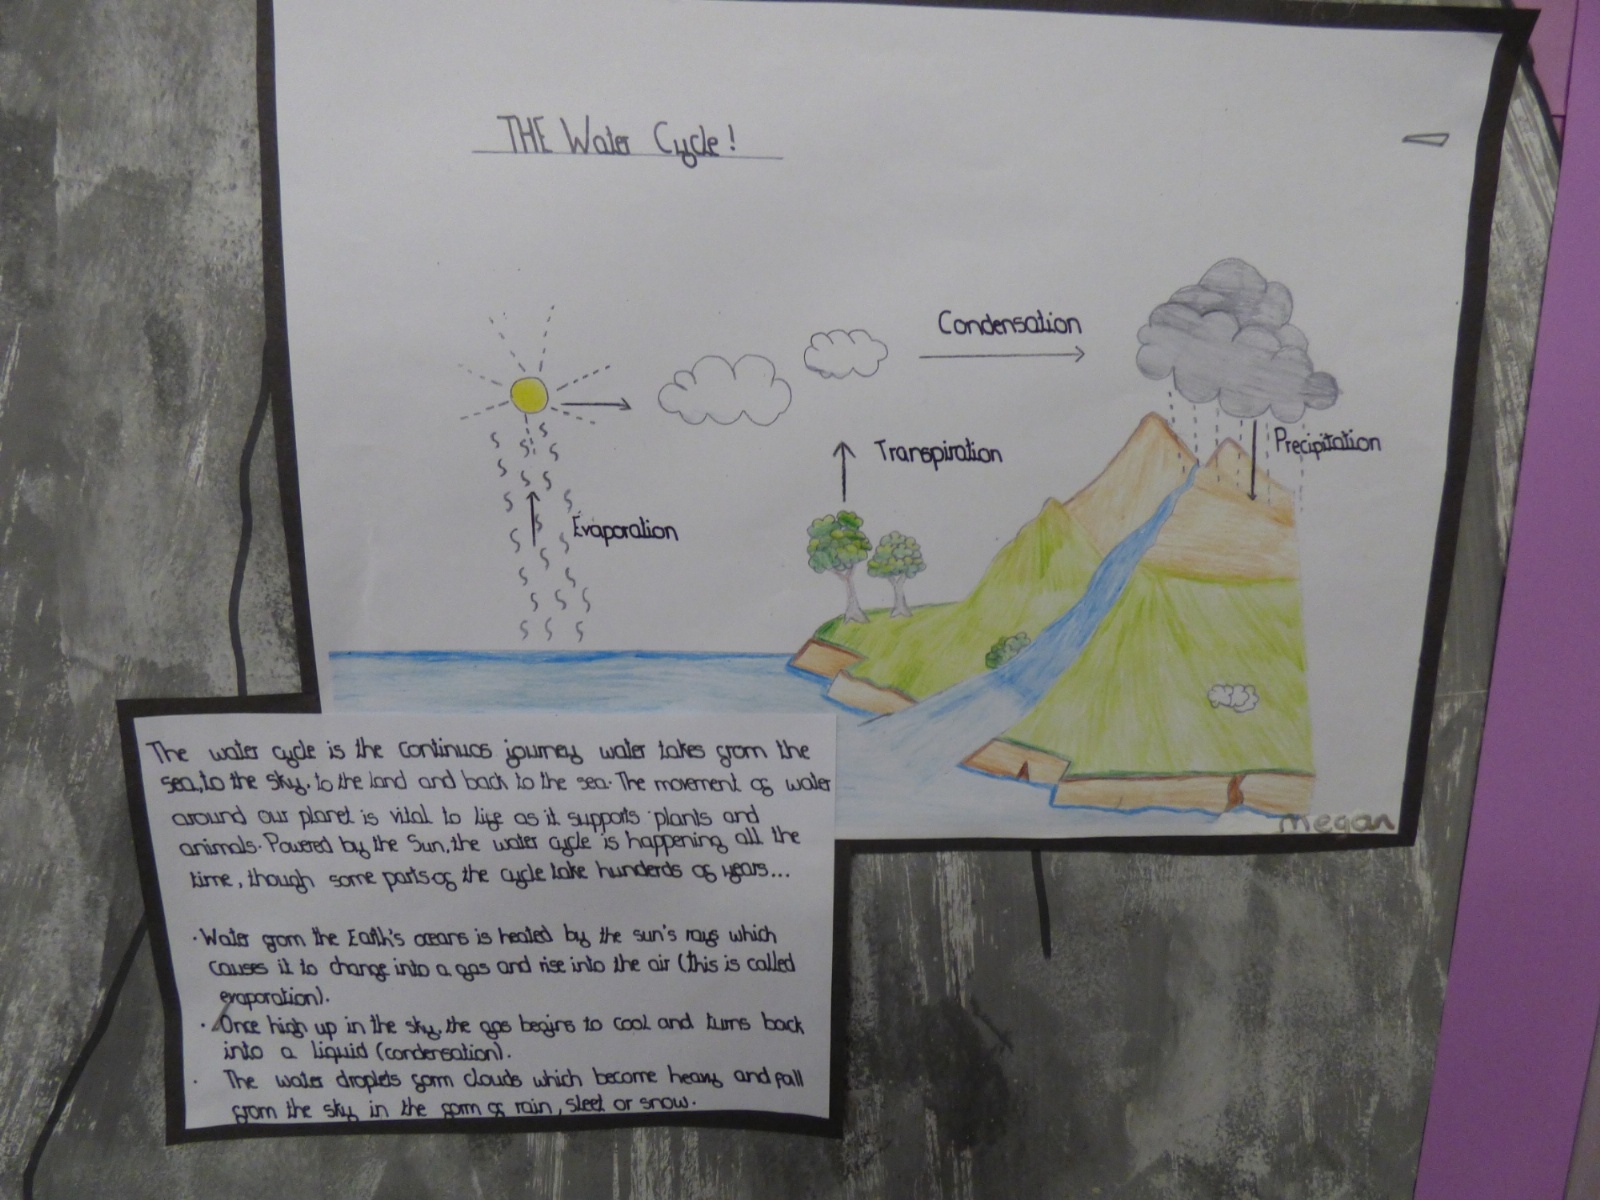 THE Water Cycle!
Condensation
Precipitation
Transpiration
Evaporation
megan
The water cycle is the continuos journey water takes from the
sea, to the sky, to the land and back to the sea. The movement of water
around our planet is vital to life as it supports plants and
animals. Powered by the Sun, the water cycle is happening all the
time, though some parts of the cycle take hunderds of years...
· Water from the Earth's oceans is heated by the sun's rays which
causes it to change into a gas and rise into the air (this is called
evaporation).
· Once high up in the sky, the gas begins to cool and turns back
into a liquid (condensation).
· The water droplets form clouds which become heavy and fall
from the sky in the form of rain, sleet or snow.